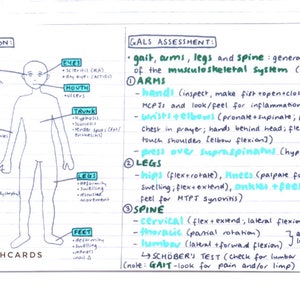 ON:
EYES
• scleritis (RA)
• dry eyes (
MOUTH
• ulcers
TRUNK
• kyphosis
• scoliosis
LEGS
• deformity
• swelling
• reduced
movement
FEET
• deformity
• swelling
HCARDS
GALS ASSESSMENT:
• gait, arms, legs and spine: genera
of the musculoskeletal system (
① ARMS
- hands (inspect, make fist+open+clos
MCPJs and look/feel for inflammation
- wrist+elbows (pronate+supinate, 
chest in prayer; hands behind head; fle
touch shoulder [elbow flexion])
- press over supraspinatus (hyp
② LEGS
- hips (flex+rotate), knees (palpate fo
swelling; flex+extend), ankles+fee
feel for MTPJ synovitis)
③ SPINE
- cervical (flex+extend, lateral flexion
- thoracic (partial rotation)
- lumbar (lateral+forward flexion)
↳ SCHÖBER'S TEST (check for lumbar
(note: GAIT - look for pain and/or limp)